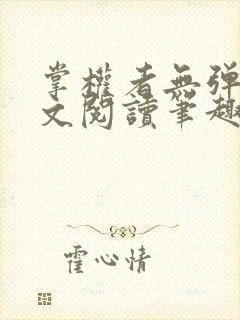 掌權者無彈
文閱讀筆趣
霍心情